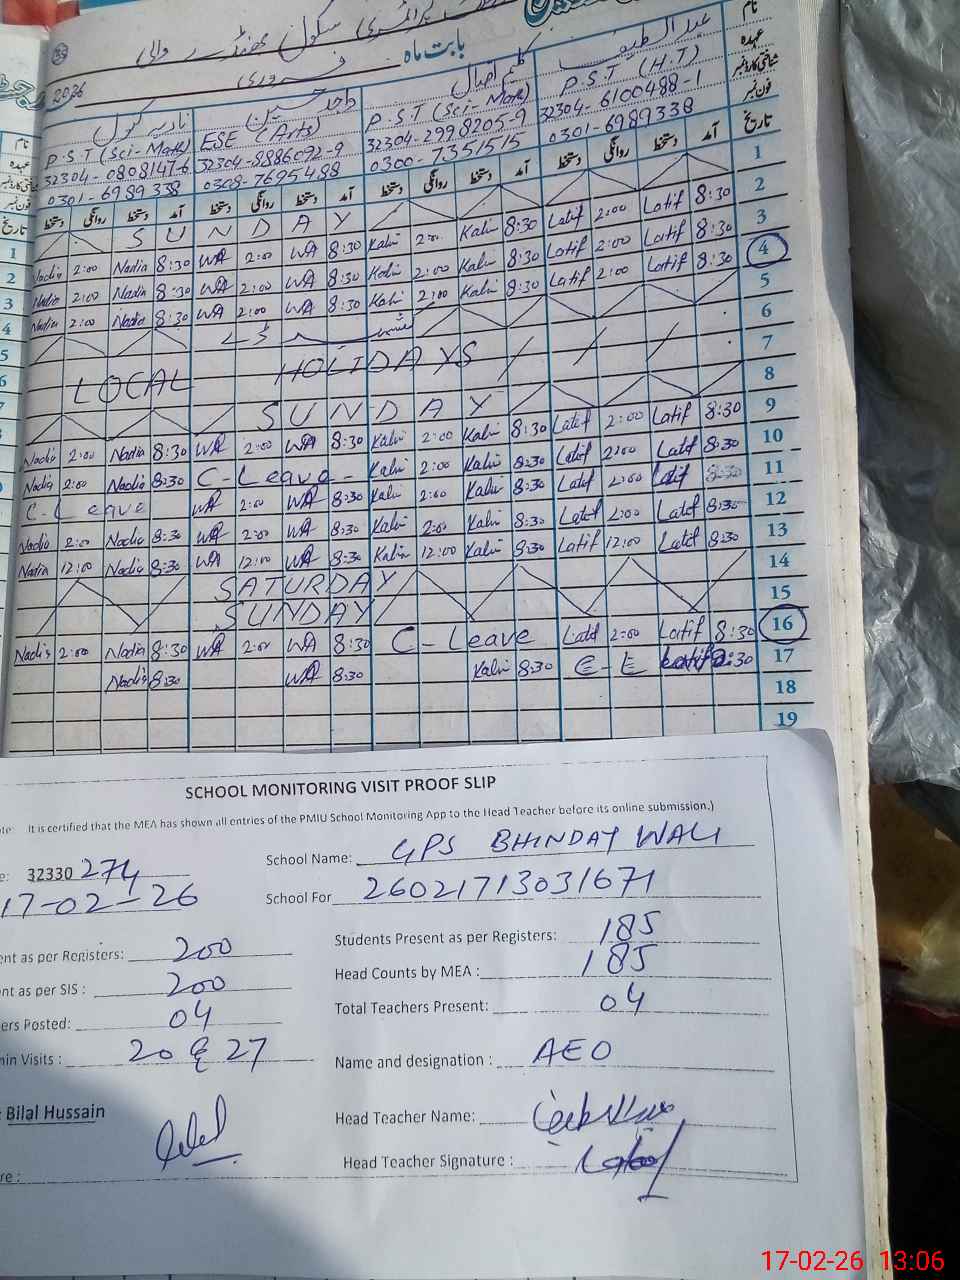 سکول بھنڈر والی
بابت ماہ فروری
2026
نام
عہدہ
شناختی کارڈ نمبر
فون نمبر
تاریخ
عبدالطیف
P.S.T (H.T)
32304-6100488-1
0301-6989338
کلیم اقبال
P.S.T (Sci-Math)
32304-2998205-9
0300-7351515
ماجد حسین
ESE (Arts)
32304-8886092-9
0308-7695488
نادیہ کنول
P.S.T (Sci-Math)
32304-0808147-6
0301-6989338
دستخط روانگی دستخط آمد دستخط روانگی دستخط آمد دستخط روانگی دستخط آمد دستخط روانگی دستخط آمد
S U N D A Y 1
Nadia 2:00 Nadia 8:30 WA 2:00 WA 8:30 Kalim 2:00 Kalim 8:30 Latif 2:00 Latif 8:30 2
Nadia 2:00 Nadia 8:30 WA 2:00 WA 8:30 Kalim 2:00 Kalim 8:30 Latif 2:00 Latif 8:30 3
Nadia 2:00 Nadia 8:30 WA 2:00 WA 8:30 Kalim 2:00 Kalim 8:30 Latif 2:00 Latif 8:30 4
5
LOCAL HOLIDAYS 6
7
S U N D A Y 8
Nadia 2:00 Nadia 8:30 WA 2:00 WA 8:30 Kalim 2:00 Kalim 8:30 Latif 2:00 Latif 8:30 9
Nadia 2:00 Nadia 8:30 C-Leave- Kalim 2:00 Kalim 8:30 Latif 2:00 Latif 8:30 10
C-Leave WA 2:00 WA 8:30 Kalim 2:00 Kalim 8:30 Latif 2:00 Latif 8:30 11
Nadia 2:00 Nadia 8:30 WA 2:00 WA 8:30 Kalim 2:00 Kalim 8:30 Latif 2:00 Latif 8:30 12
Nadia 12:00 Nadia 8:30 WA 12:00 WA 8:30 Kalim 12:00 Kalim 8:30 Latif 12:00 Latif 8:30 13
SATURDAY 14
SUNDAY 15
Nadia 2:00 Nadia 8:30 WA 2:00 WA 8:30 C-Leave Latif 2:00 Latif 8:30 16
Nadia 8:30 WA 8:30 Kalim 8:30 17
18
19
SCHOOL MONITORING VISIT PROOF SLIP
It is certified that the MEA has shown all entries of the PMIU School Monitoring App to the Head Teacher before its online submission.)
32330 274
School Name: GPS BHINDAY WALI
17-02-26
School For 26021713031671
ent as per Registers: 200
Students Present as per Registers: 185
ent as per SIS : 200
Head Counts by MEA : 185
ers Posted: 04
Total Teachers Present: 04
min Visits : 20 & 27
Name and designation : AEO
Bilal Hussain
Head Teacher Name: عبدالطیف
Head Teacher Signature : Latif
17-02-26 13:06